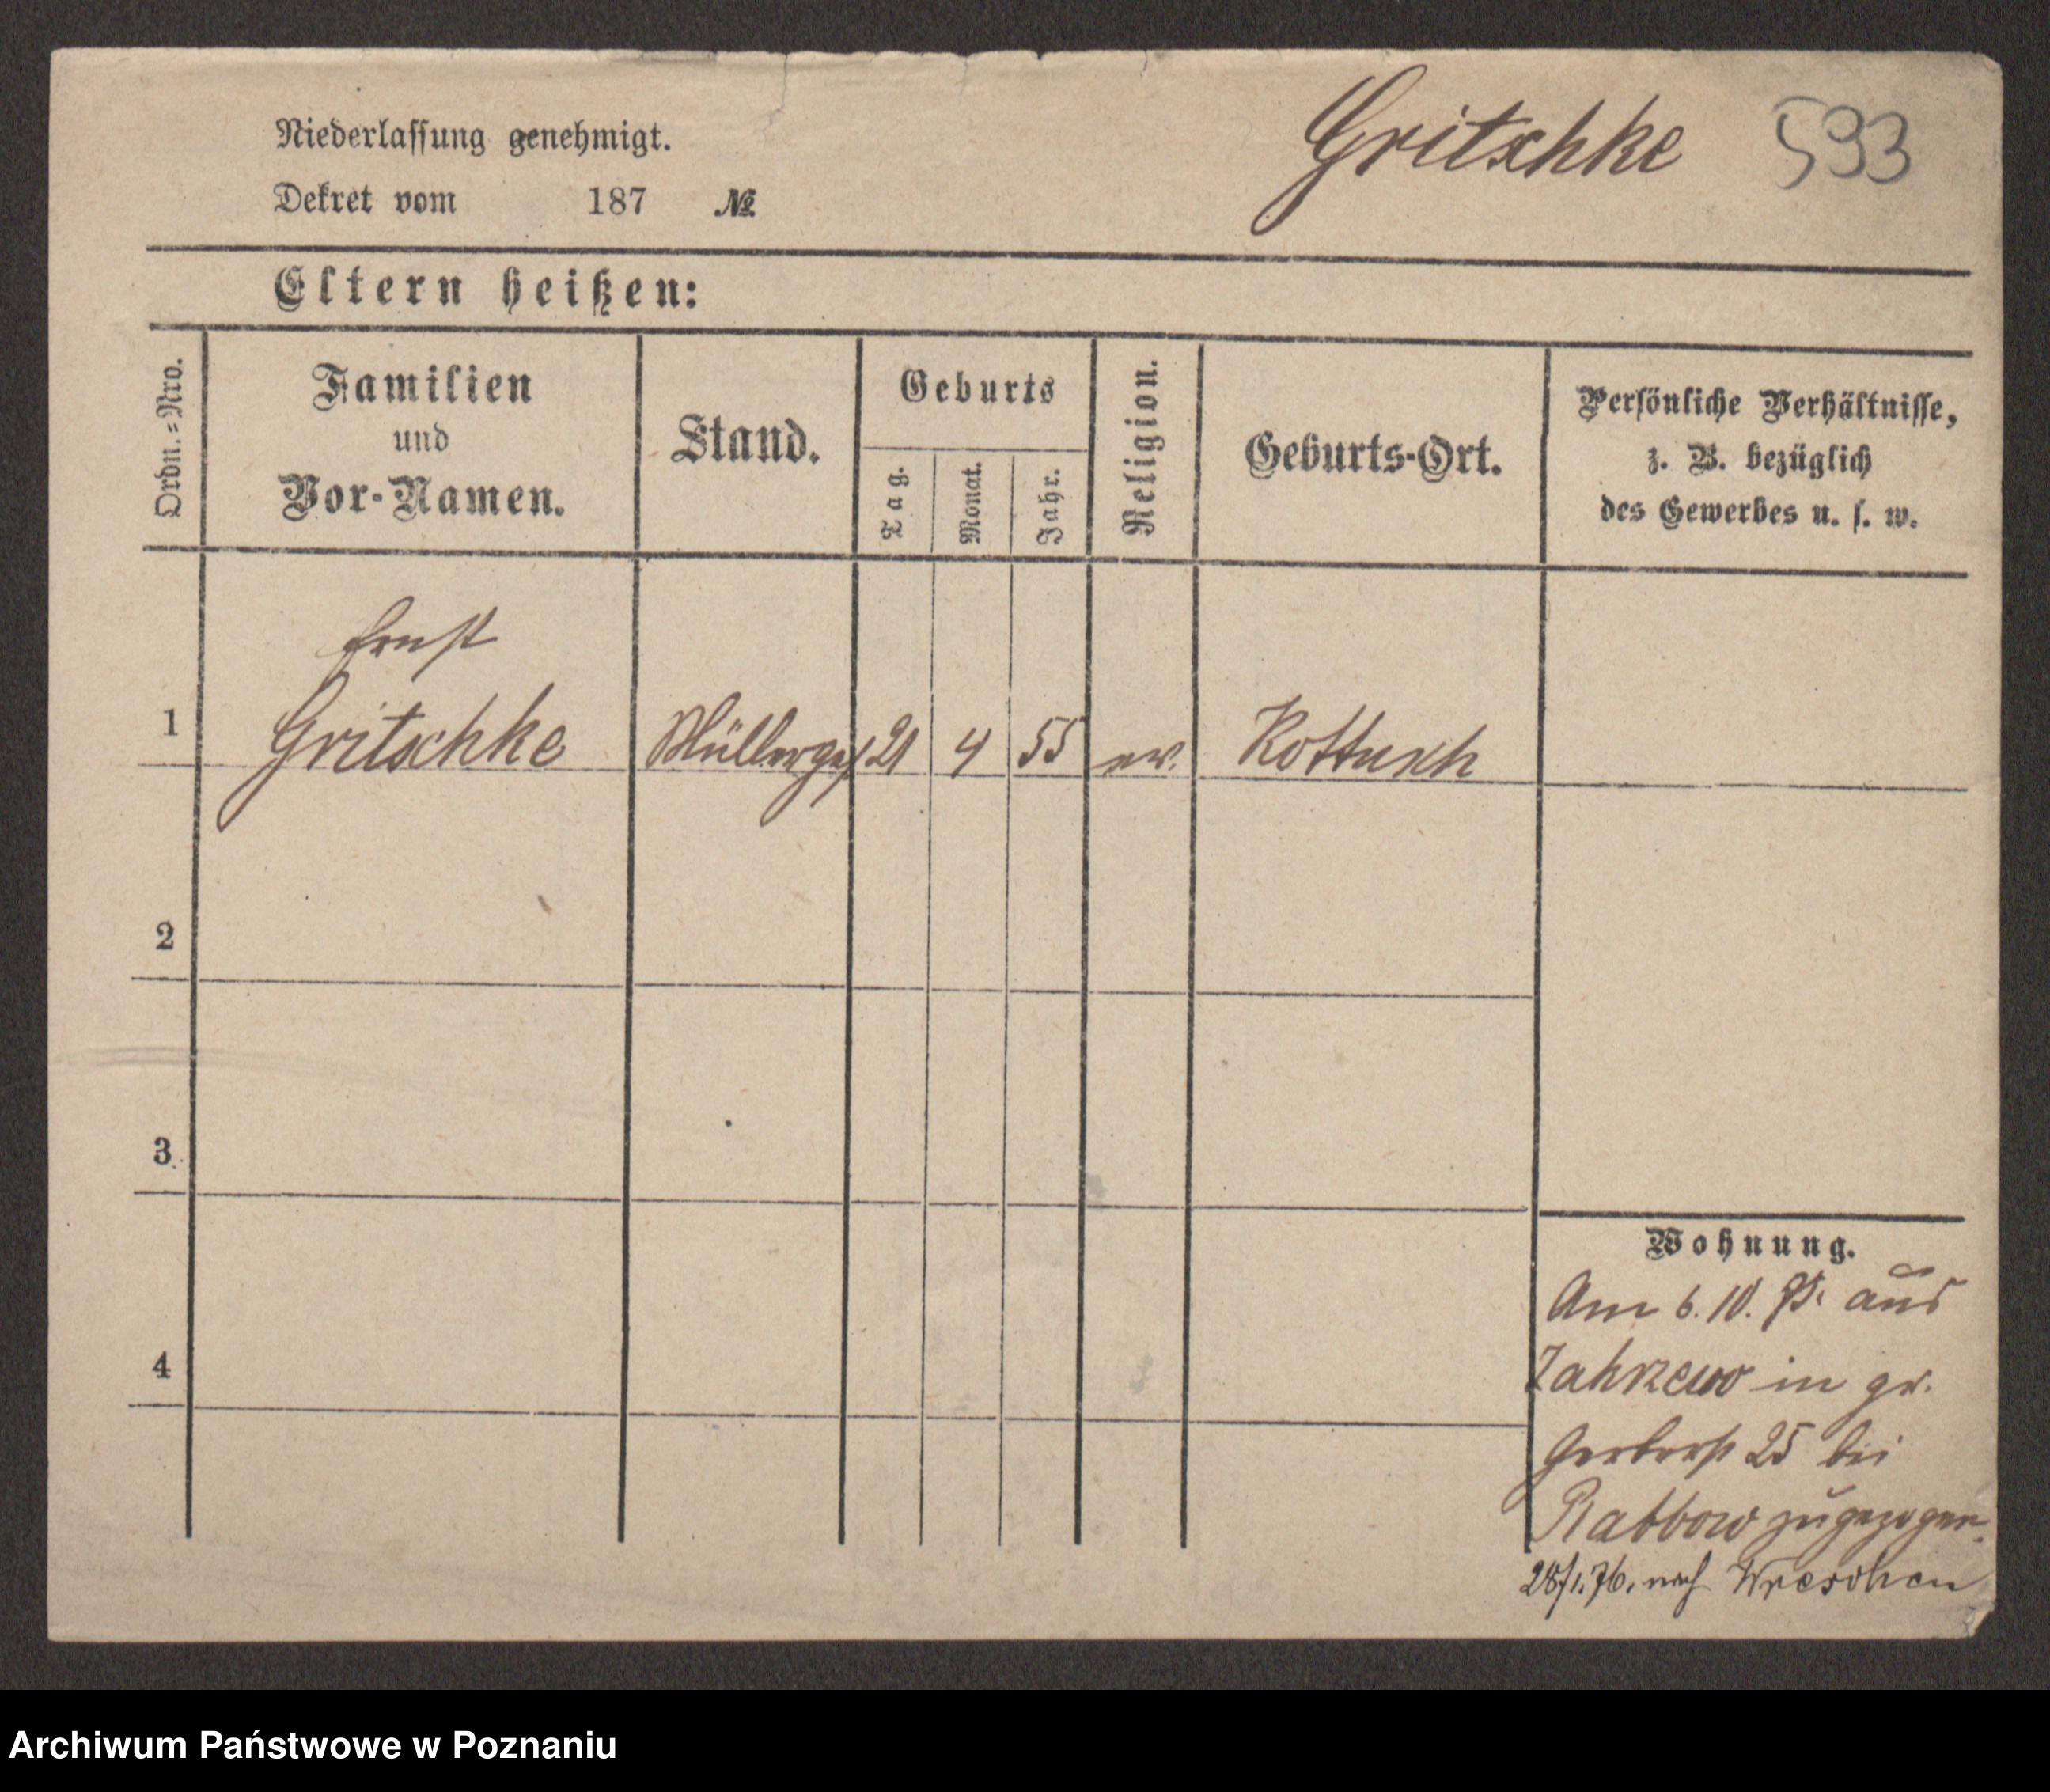 Niederlassung genehmigt.
Gritschke 593
Dekret vom 187 №
Eltern heißen:
Ordn.=Nro.
Familien
und
Vor-Namen.
Stand.
Geburts
Tag.
Monat.
Jahr.
Religion.
Geburts-Ort.
Persönliche Verhältnisse,
z. B. bezüglich
des Gewerbes u. s. w.
Ernst
1 Gritschke Müllerges 21 4 55 ev. Kottusch
2
3
4
Wohnung.
Am 6. 10. aus
Zakrzewo in gr.
Gerberst 25 bei
Rabbow zugezogen.
28/1. 76. nach Wreschen
Archiwum Państwowe w Poznaniu